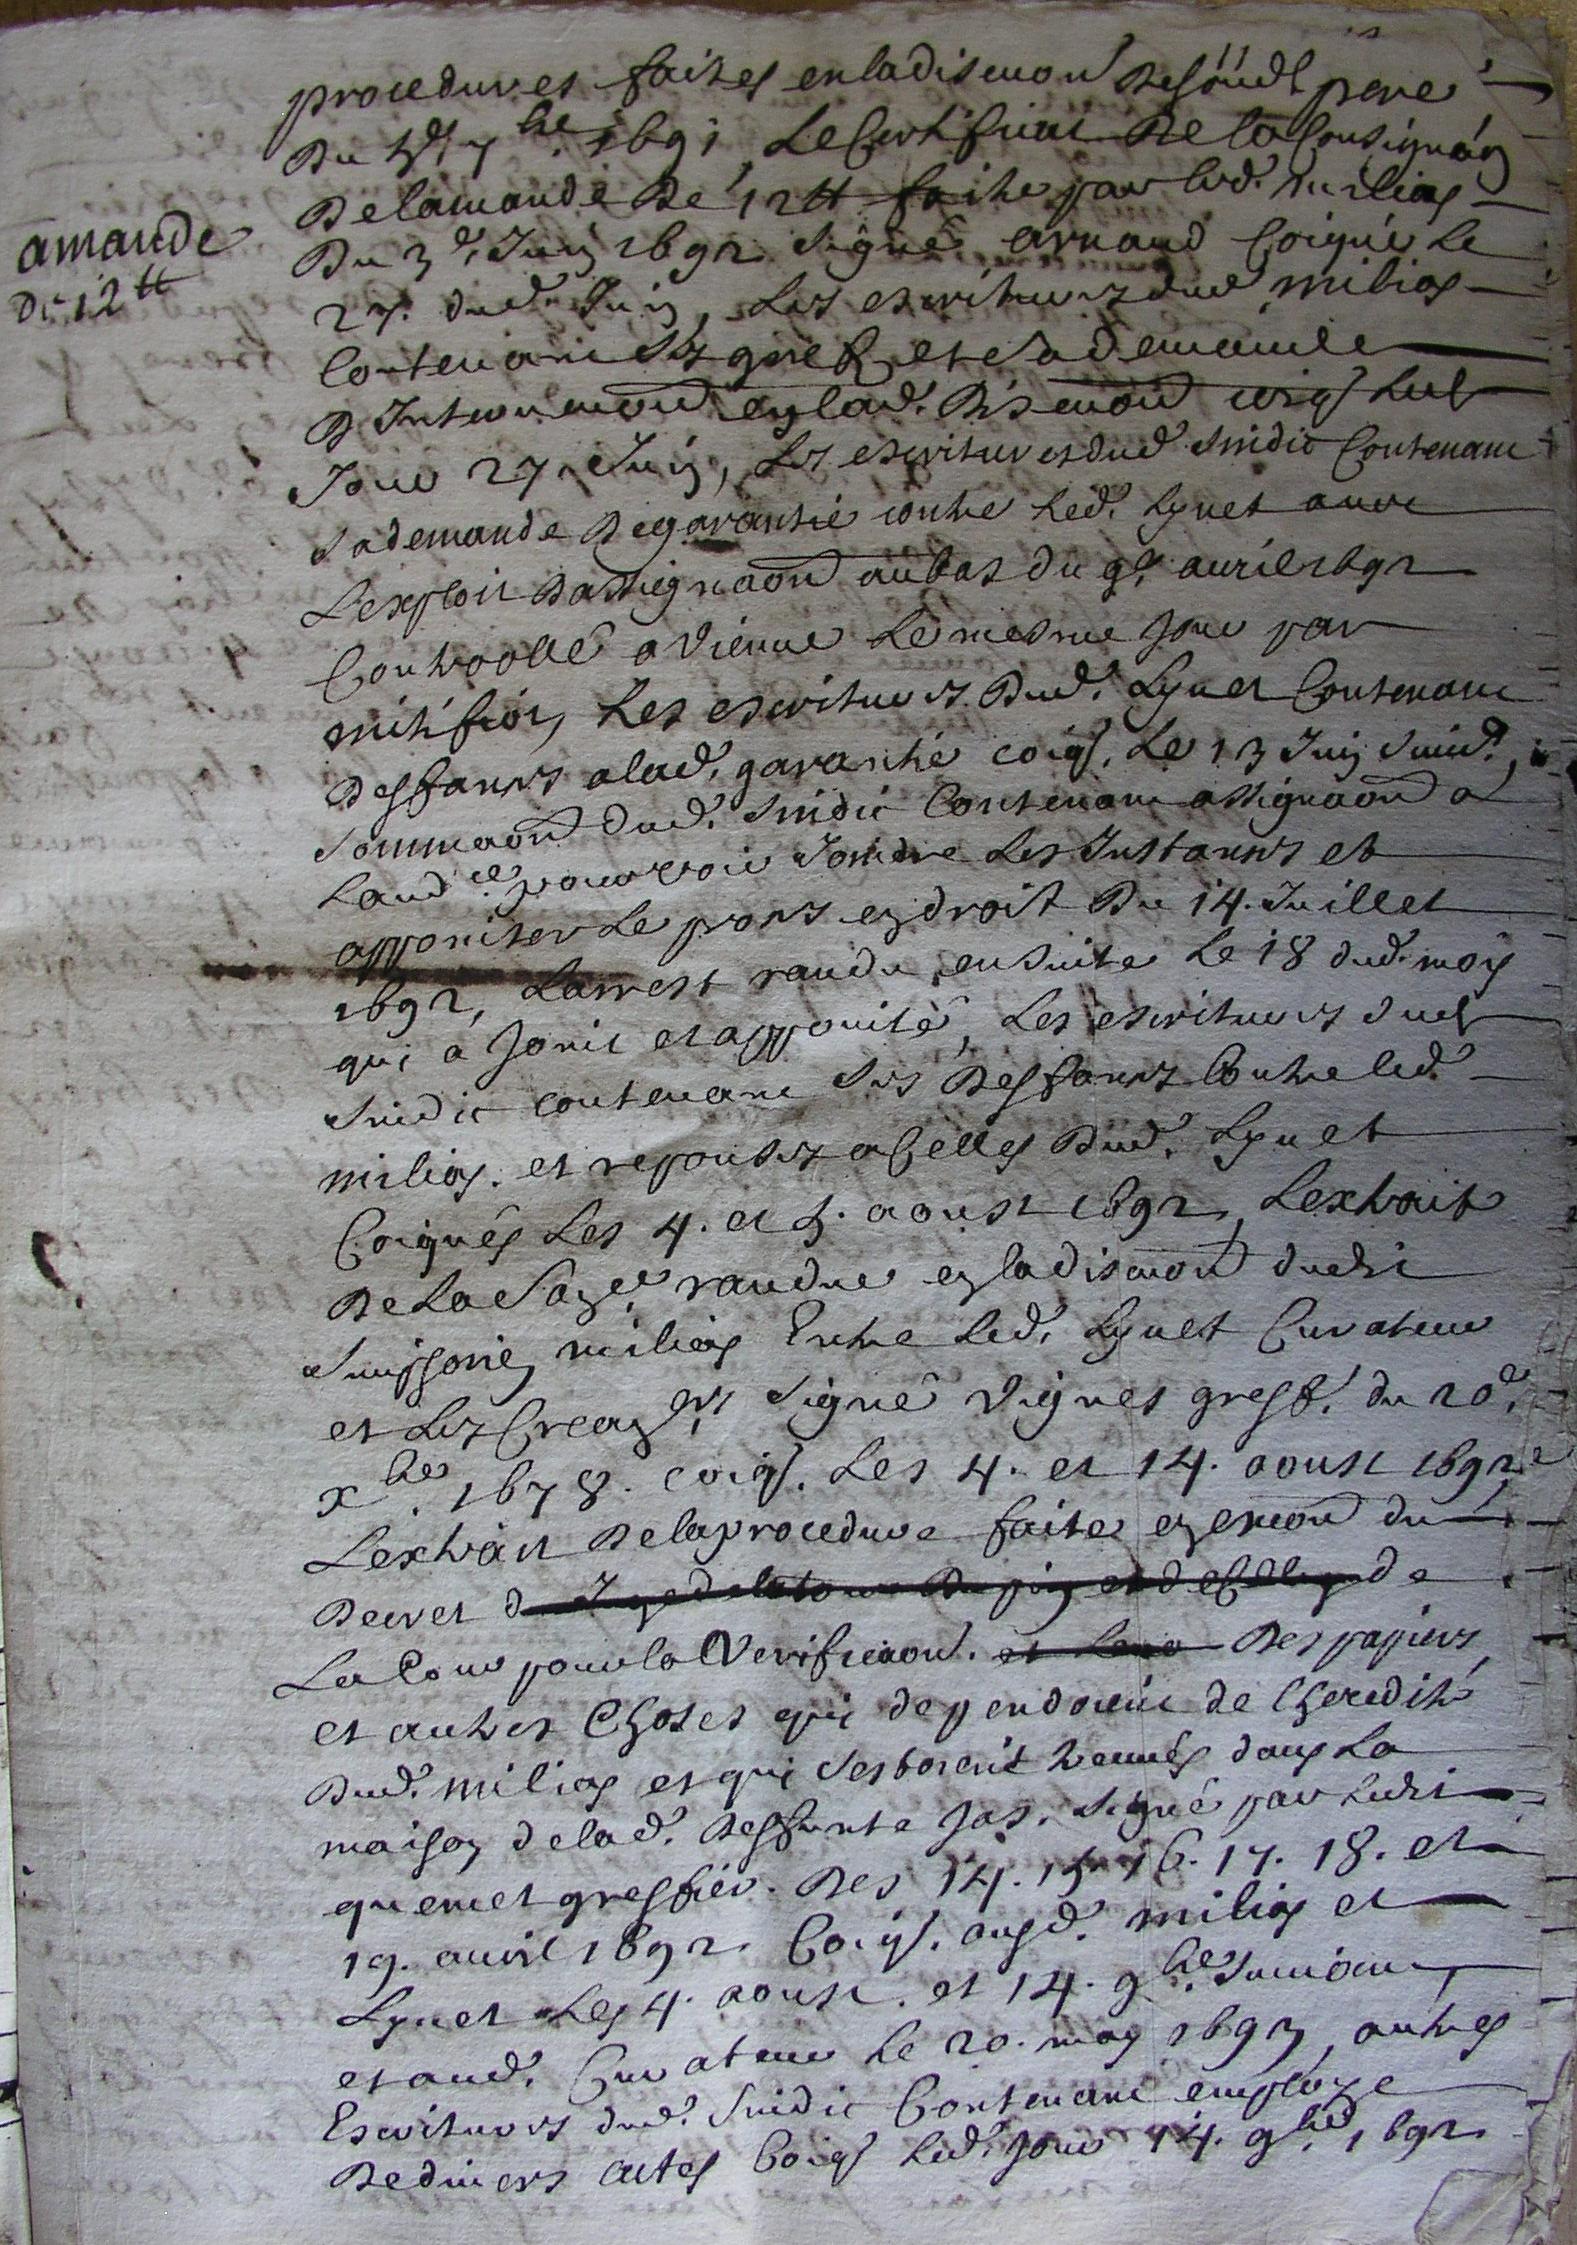 procedures faites en la discution de son d. pere
du 5e 7bre 1691, Le Certifficat de la Consignaõn
de lamande de 12tt faite par led. milias
du 3e. Juin 1692 signé arnaud Coigné le
amande
de 12tt
27. dud. Juin, Les escritures dud milias
Contenant Ses griefs et Sa demande
en lad. discution coig led
Jour 27 Juin, Les escritures dud Sindic Contenant
Sa demande de garantie contre led. Lynet avec
Lexploit dassignaõn au bas du 9e. auril 1692
Controollé a Vienne Le mesme Jour par
Les escritures dud. Lynet Contenant
deffances a lad. garantie coig. Le 13 Juin Suiv.,
Sommaõn dud. Sindic Contenant assignaõn a
Laudce. pour voir Joindre Les Instances et
appointer le proces en droit du 14. Juillet
1692, Larrest randu ensuite Le 18 dud. mois
qui a Joint et appointé, Les escritures dud
Sindic contenant Ses deffances Contre led.
milias. et reponces a Celles dud. Lynet
Coignés Les 4. et 5. aoust 1692, Lextrait
de La Sance randue en la discution dudit
milias Entre led. Lynet Curateur
et Les Creaners. Signé Vignes greff. du 20e.
xbre. 1678. coig. Les 4. et 14. aoust 1692,
Lextrait de la procedure faite en execuon du
decret d de
La Cour pour la Verificaon. et des papiers
et autres Choses qui dependoient de lheredité
dud. milias et qui Sestoient treuués dans La
maison de lad. deffunte Jas. Signé par ledit
quemet greffier. des 14. 15. 16. 17. 18. et
19. auril 1692. Coig. ausd. milias et
Lynet Les 4. aoust. et 14. 9bre. Suivant,
et aud. Curateur le 20. may 1693, autres
Escritures dud. Sindic Contenant employe
de divers actes Coig led. Jour 14. 9bre. 1692